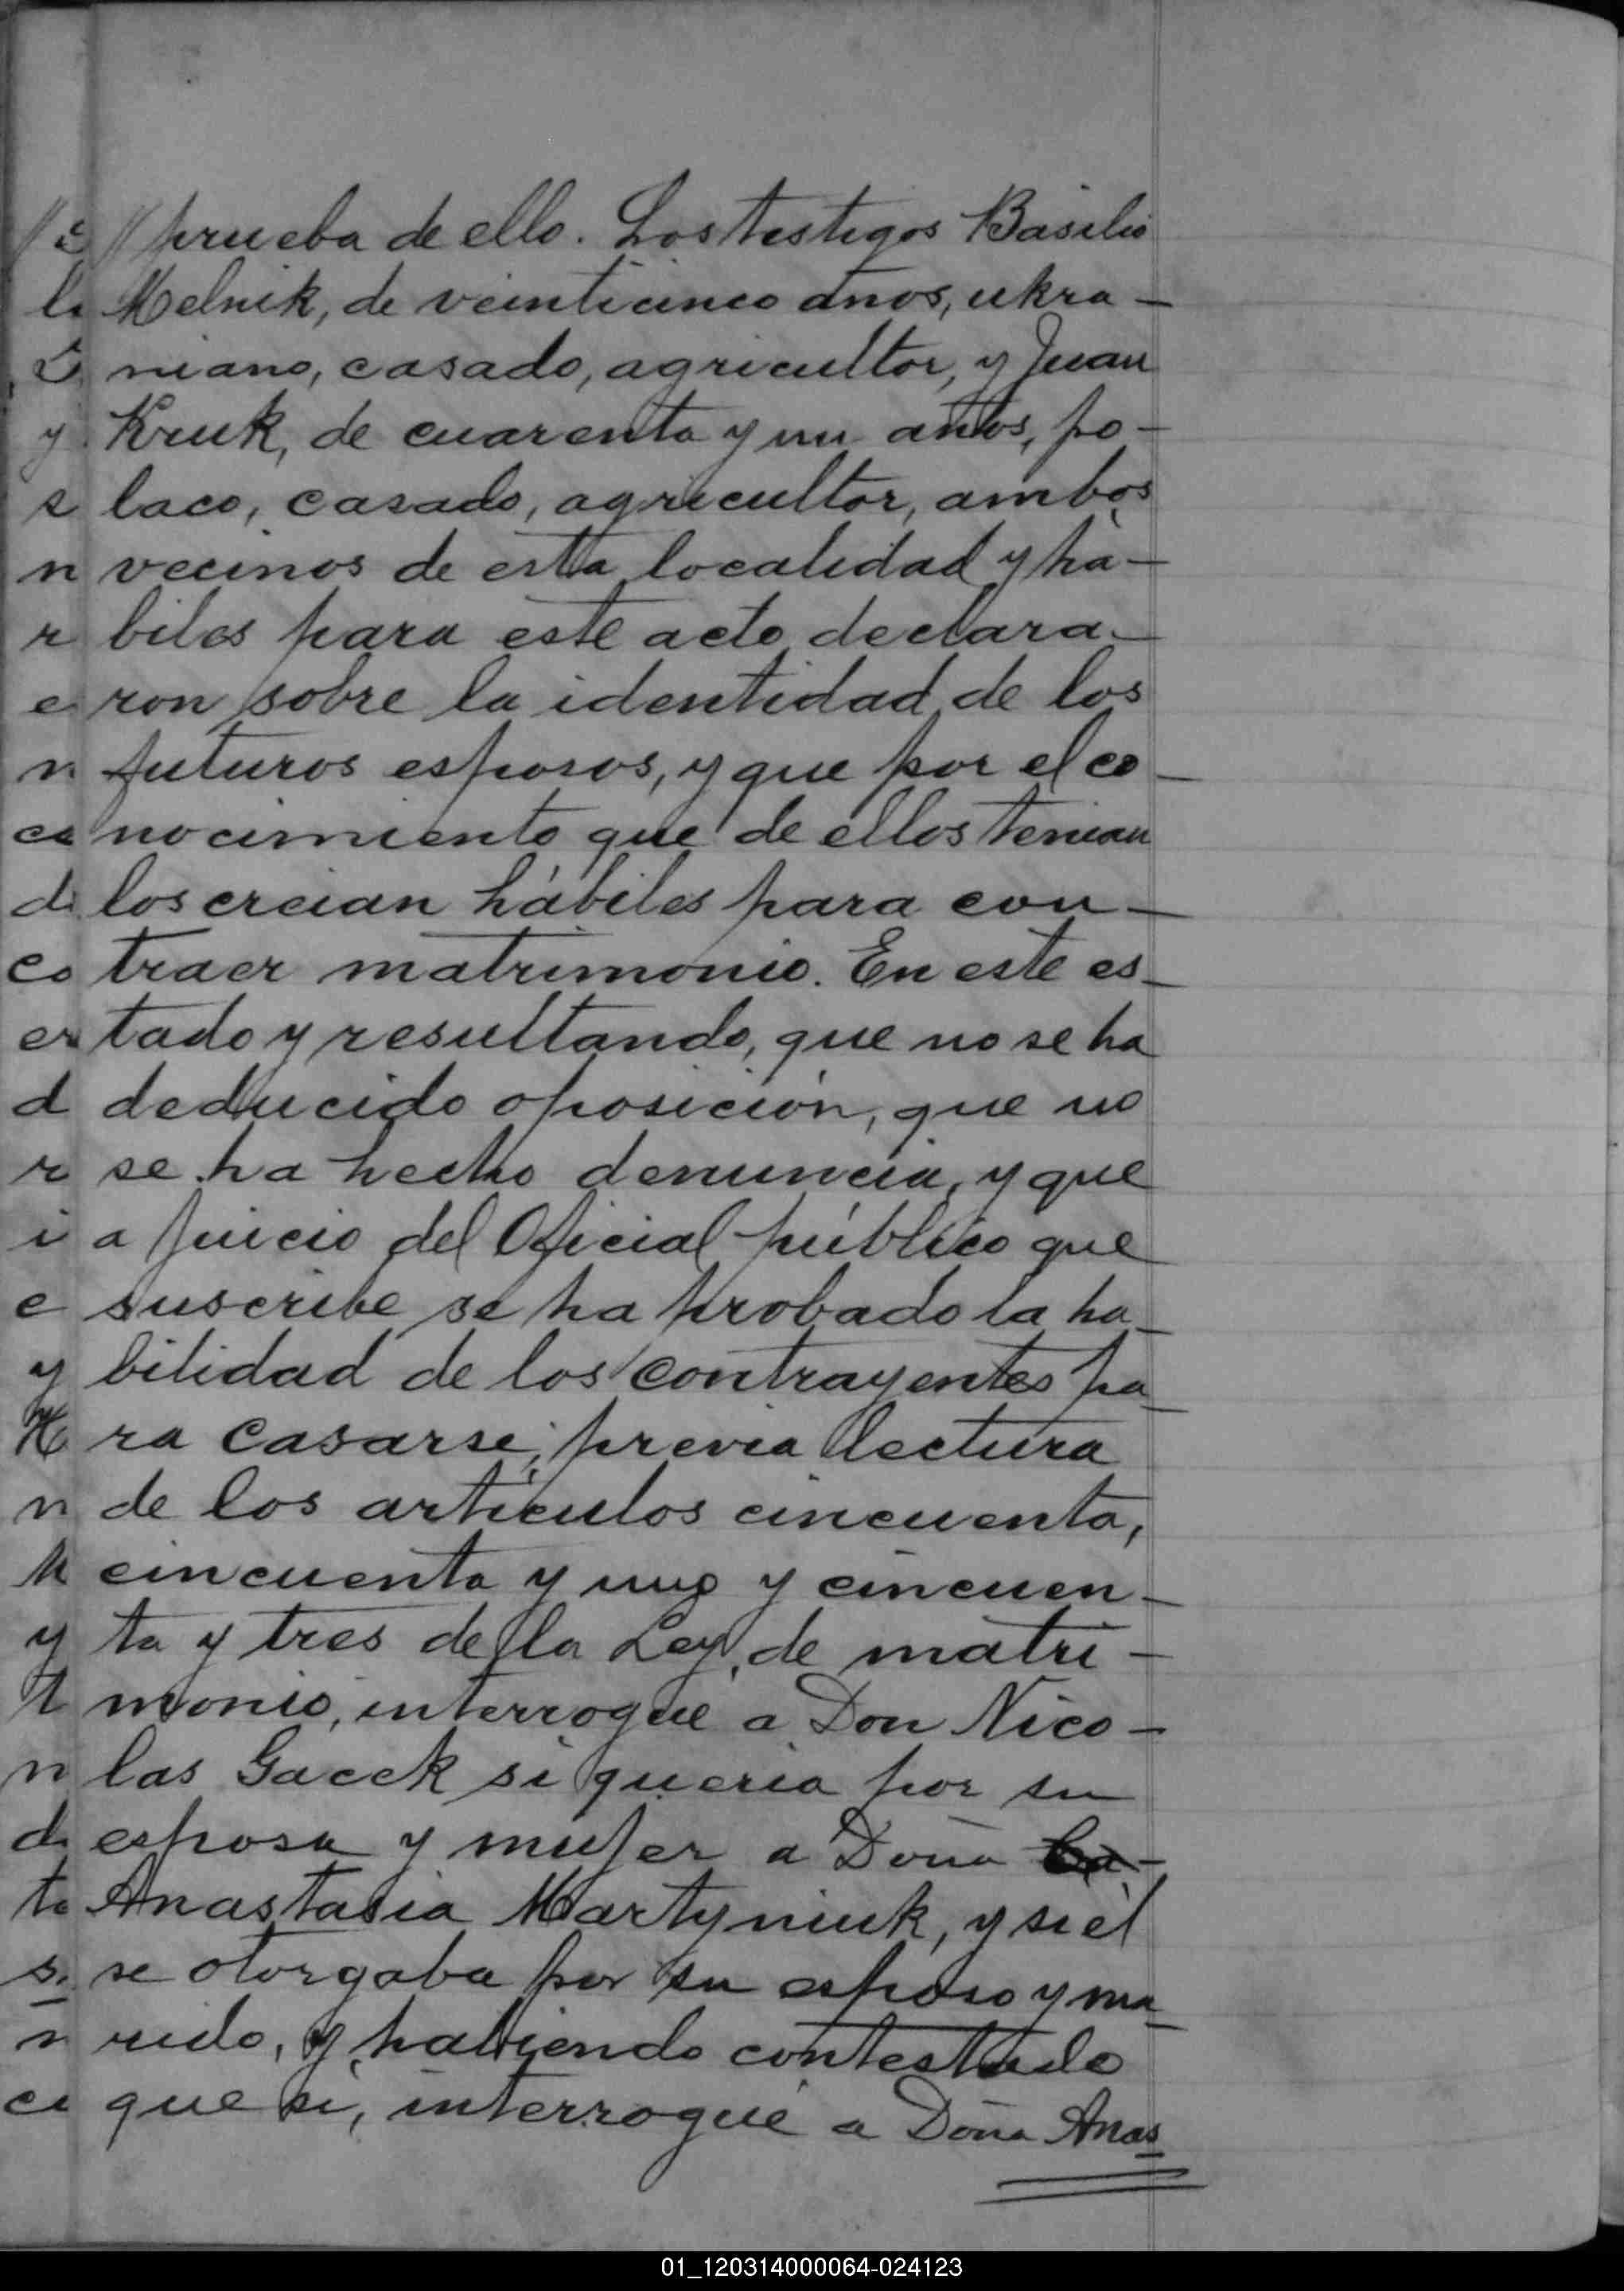 // prueba de ello. Los testigos Basilio
Melnik, de veinticinco años, ukra-
niano, casado, agricultor, y Juan
Kruk, de cuarenta y un años, po-
laco, casado, agricultor, ambos
vecinos de esta localidad y há-
biles para este acto declara-
ron sobre la identidad de los
futuros esposos, y que por el co-
nocimiento que de ellos tenian
los creian hábiles para con-
traer matrimonio. En este es-
tado y resultando, que no se ha
deducido oposición, que no
se ha hecho denuncia, y que
a juicio del Oficial público que
suscribe se ha probado la ha-
bilidad de los contrayentes pa-
ra casarse, previa lectura
de los artículos cincuenta,
cincuenta y uno y cincuen-
ta y tres de la Ley de matri-
monio, interrogué a Don Nico-
las Gacek si queria por su
esposa y mujer a Doña
Anastasia Martyniuk, y si él
se otorgaba por su esposo y ma-
rido, y habiendo contestado
que si, interrogué a Doña Anas
01_120314000064-024123